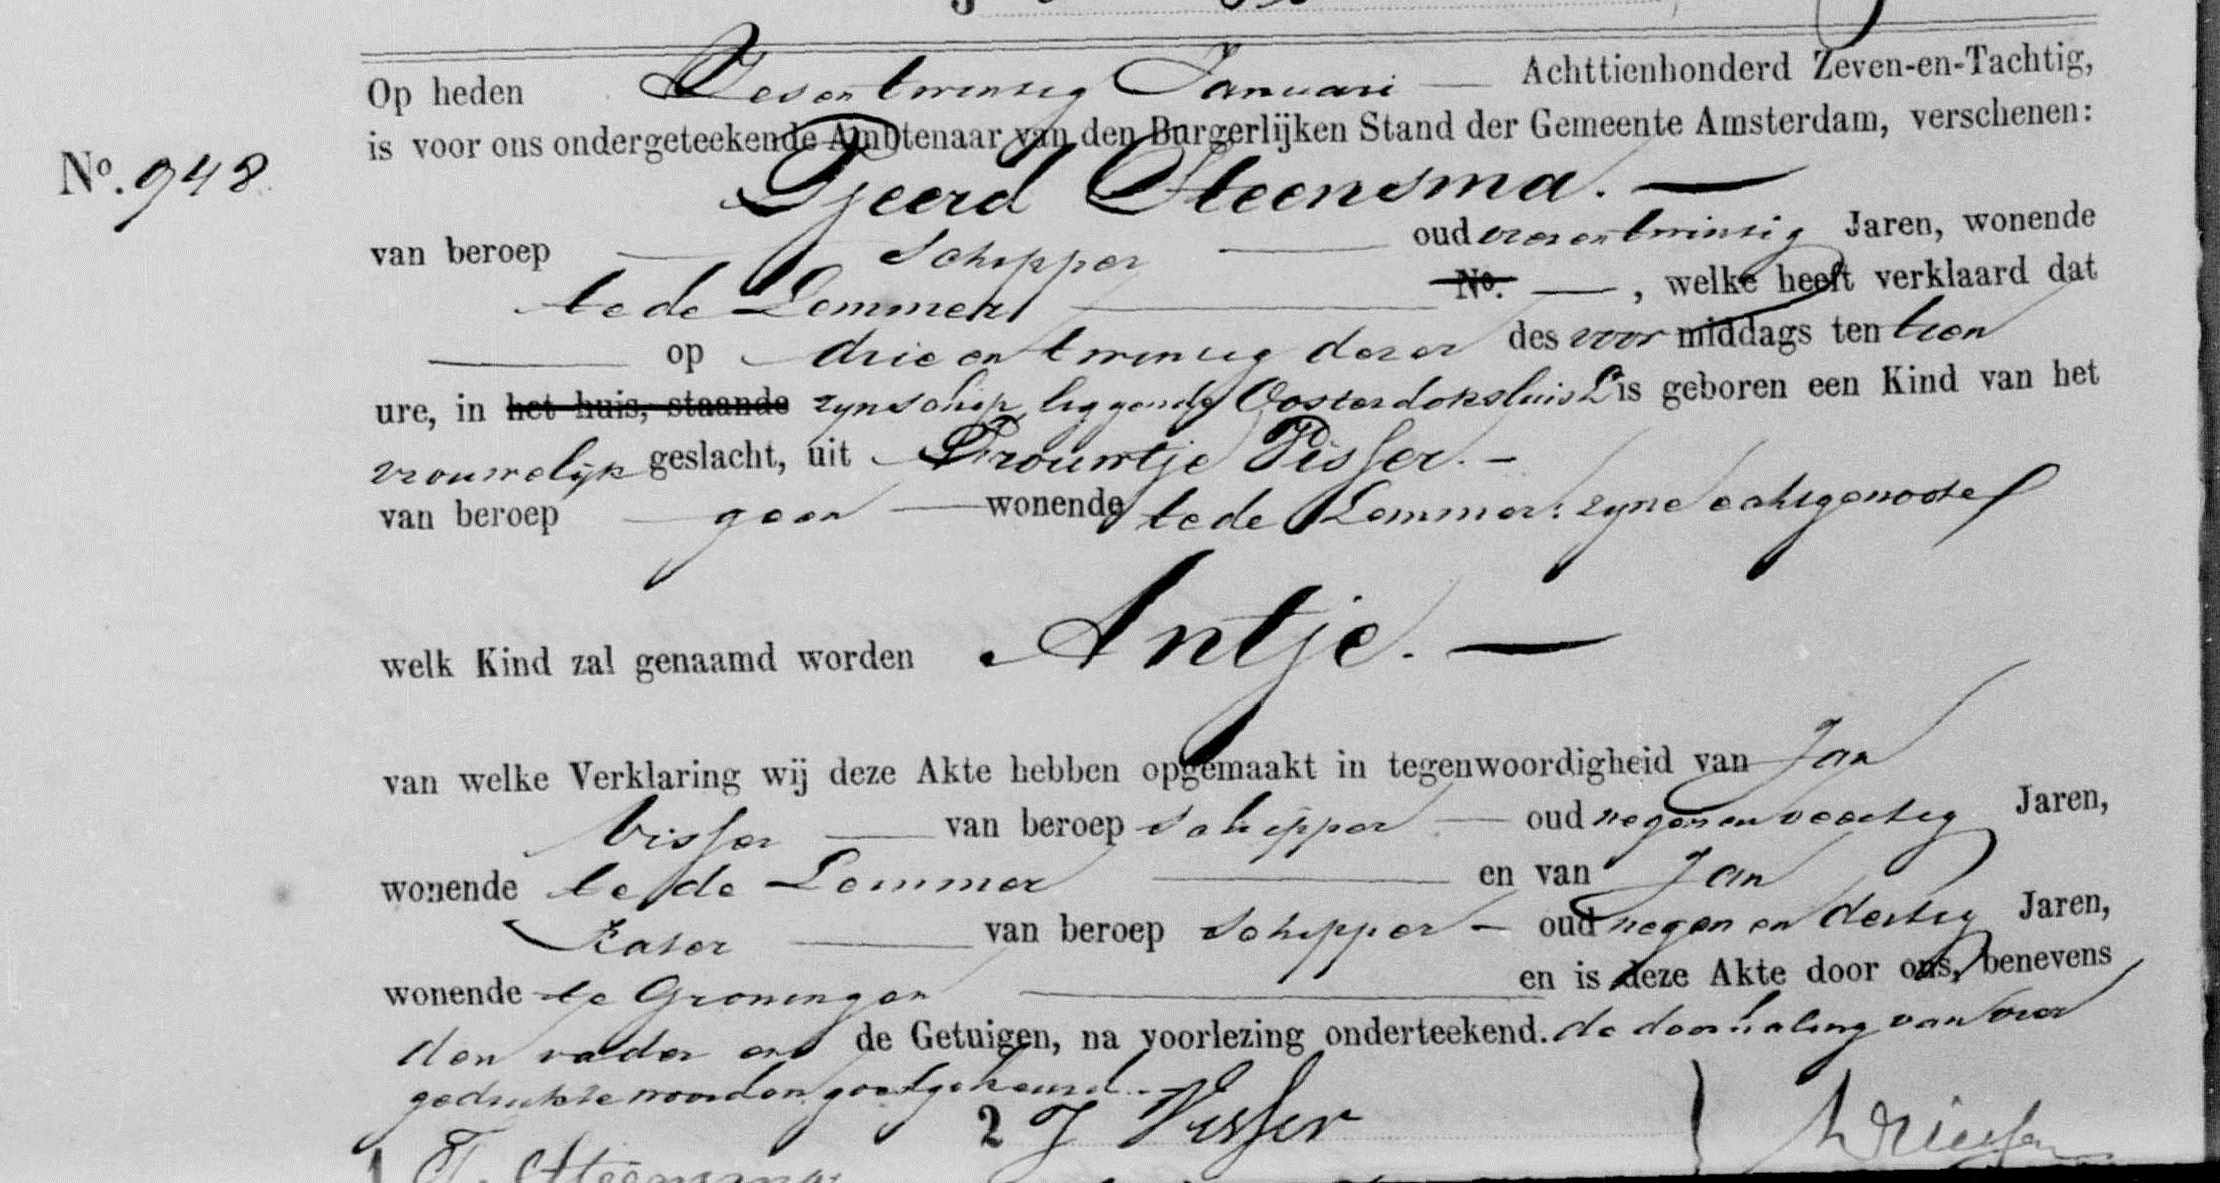 Op heden Zesentwintig Januari — Achttienhonderd Zeven-en-Tachtig,
is voor ons ondergeteekende Ambtenaar van den Burgerlijken Stand der Gemeente Amsterdam, verschenen:
No. 948
Tjeerd Steensma. —
van beroep — Schipper — oud vierentwintig Jaren, wonende
te de Lemmer — No. — , welke heeft verklaard dat
— op drieentwintig dezer des voor middags ten tien
ure, in het huis, staande zyn schip liggende Oosterdoksluis is geboren een Kind van het
vrouwelijk geslacht, uit Vrouwtje Visser. -
van beroep — geen — wonende te de Lemmer: zyne echtgenoote
welk Kind zal genaamd worden Antje. —
van welke Verklaring wij deze Akte hebben opgemaakt in tegenwoordigheid van Jan
Visser — van beroep schipper — oud negenenveertig Jaren,
wonende te de Lemmer — en van Jan
Kater — van beroep schipper — oud negen en dertig Jaren,
wonende te Groningen — en is deze Akte door ons, benevens
den vader en de Getuigen, na voorlezing onderteekend. de doorhaling van vier
gedrukte woorden goedgekeurd. -
2 J Visser
1 T. Steensma